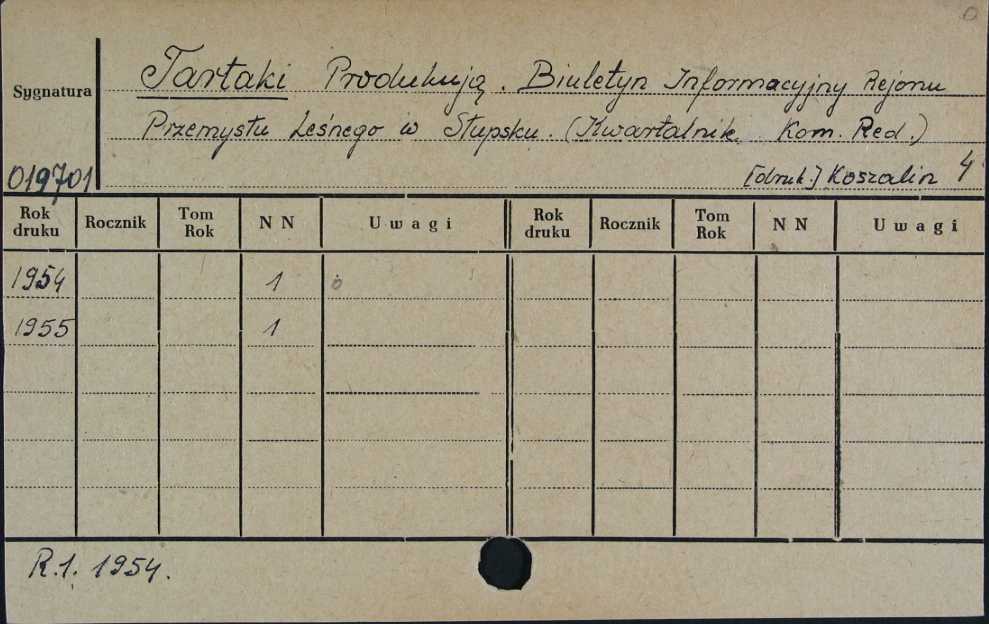 Tartaki Produkują. Biuletyn Informacyjny Rejonu
Sygnatura
Przemysłu Leśnego w Słupsku. (Kwartalnik. Kom. Red.)
019701
[druk.] Koszalin 4
Rok druku Rocznik Tom Rok N N Uwagi Rok druku Rocznik Tom Rok N N Uwagi
1954 1
1955 1
R.1. 1954.